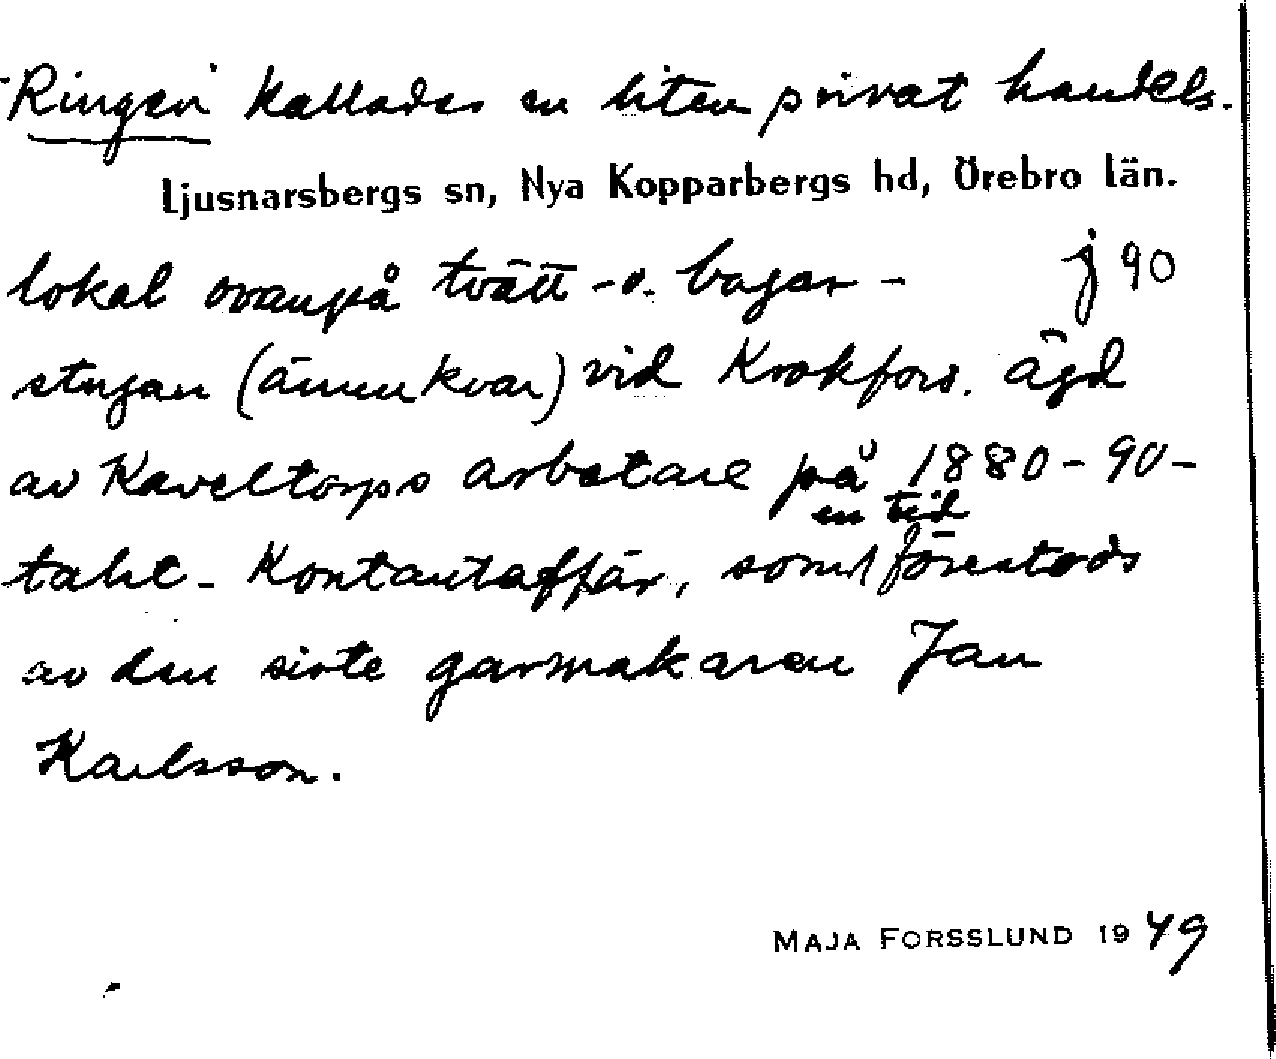 "Ringen" kallades en liten privat handels-
Ljusnarsbergs sn, Nya Kopparbergs hd, Örebro län.
lokal ovanpå tvätt- o. bagar-
j 90
stugan (ännu kvar) vid Krokfors. ägd
av Kaveltorps arbetare på 1880-90-
en tid
talet - Kontantaffär, som förestods
av den siste garmakaren Jan
Karlsson.
MAJA FORSSLUND 1949